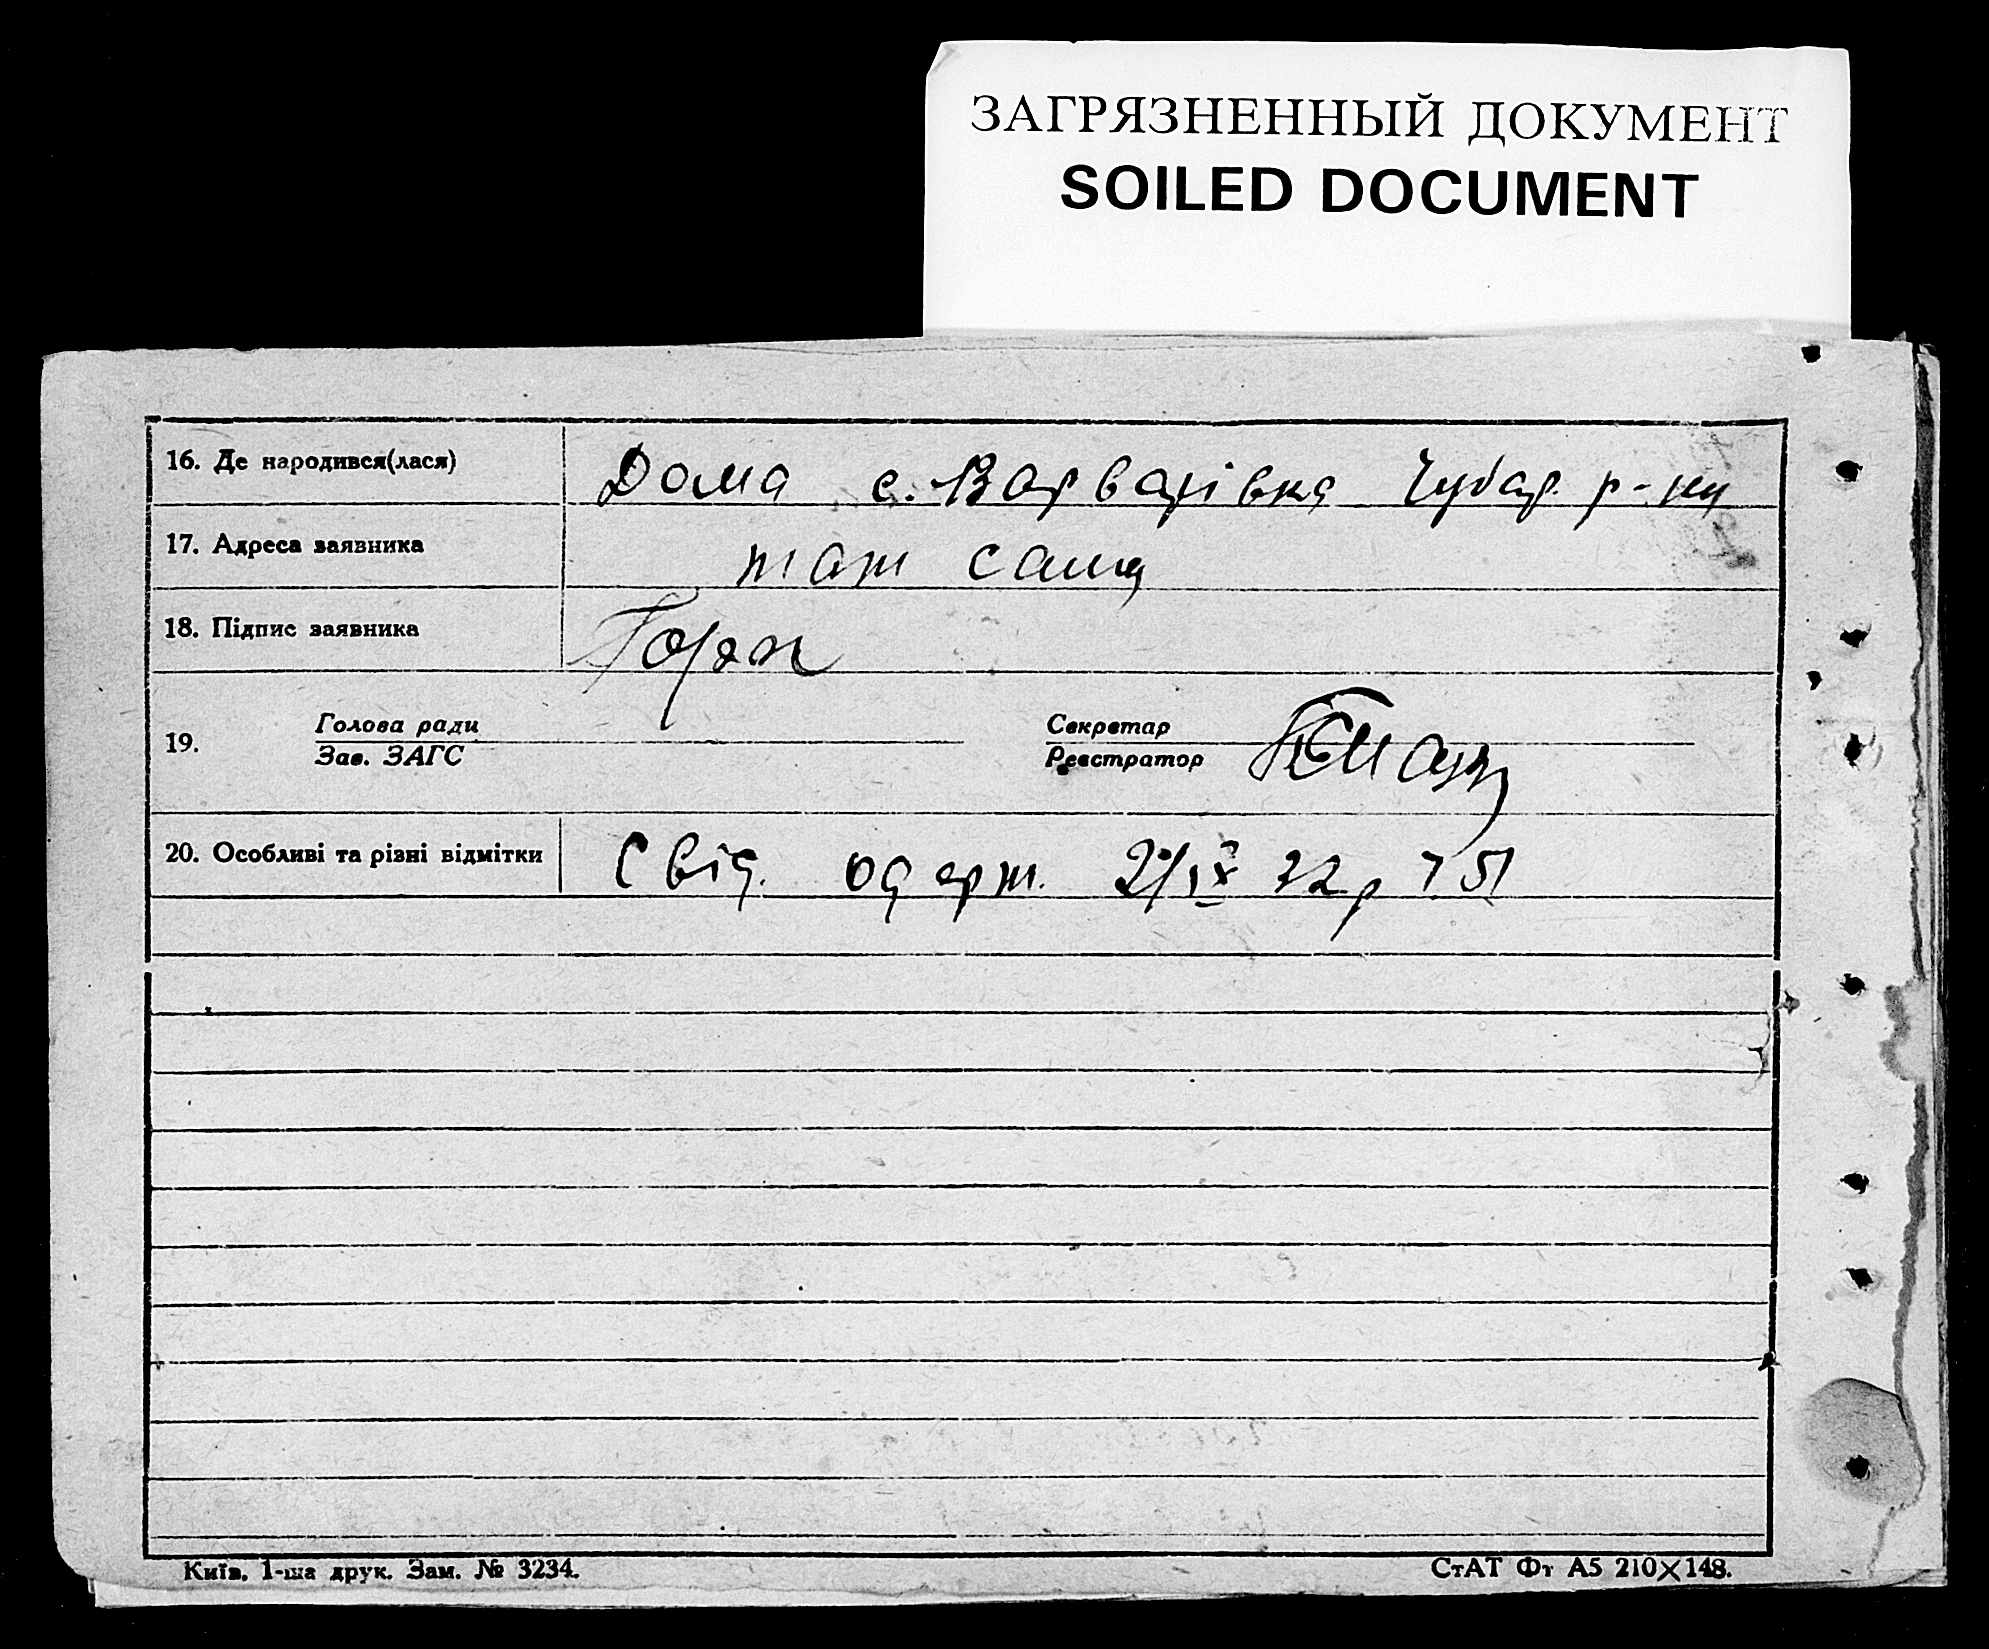 ЗАГРЯЗНЕННЫЙ ДОКУМЕНТ
SOILED DOCUMENT
16. Де народився(лася) Дома с. Варварівка Чубар. р-ну
17. Адреса заявника та ж сама
18. Підпис заявника
19. Голова ради Секретар
Зав. ЗАГС Реєстратор
20. Особливі та різні відмітки Свід. одерж.
Київ. 1-ша друк. Зам. № 3234. СтАТ Фт А5 210×148.